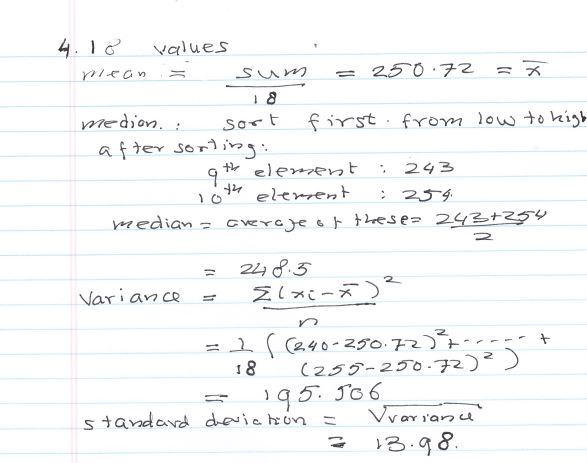 4. 18 values
mean = sum/18 = 250.72 = x̄
median : sort first from low to high
after sorting:
9th element : 243
10th element : 254
median = average of these = 243+254/2
= 248.5
Variance = Σ(xi-x̄)²/n
= 1/18 ( (240-250.72)² + ------ +
(255-250.72)² )
= 195.506
standard deviation = √variance
= 13.98.